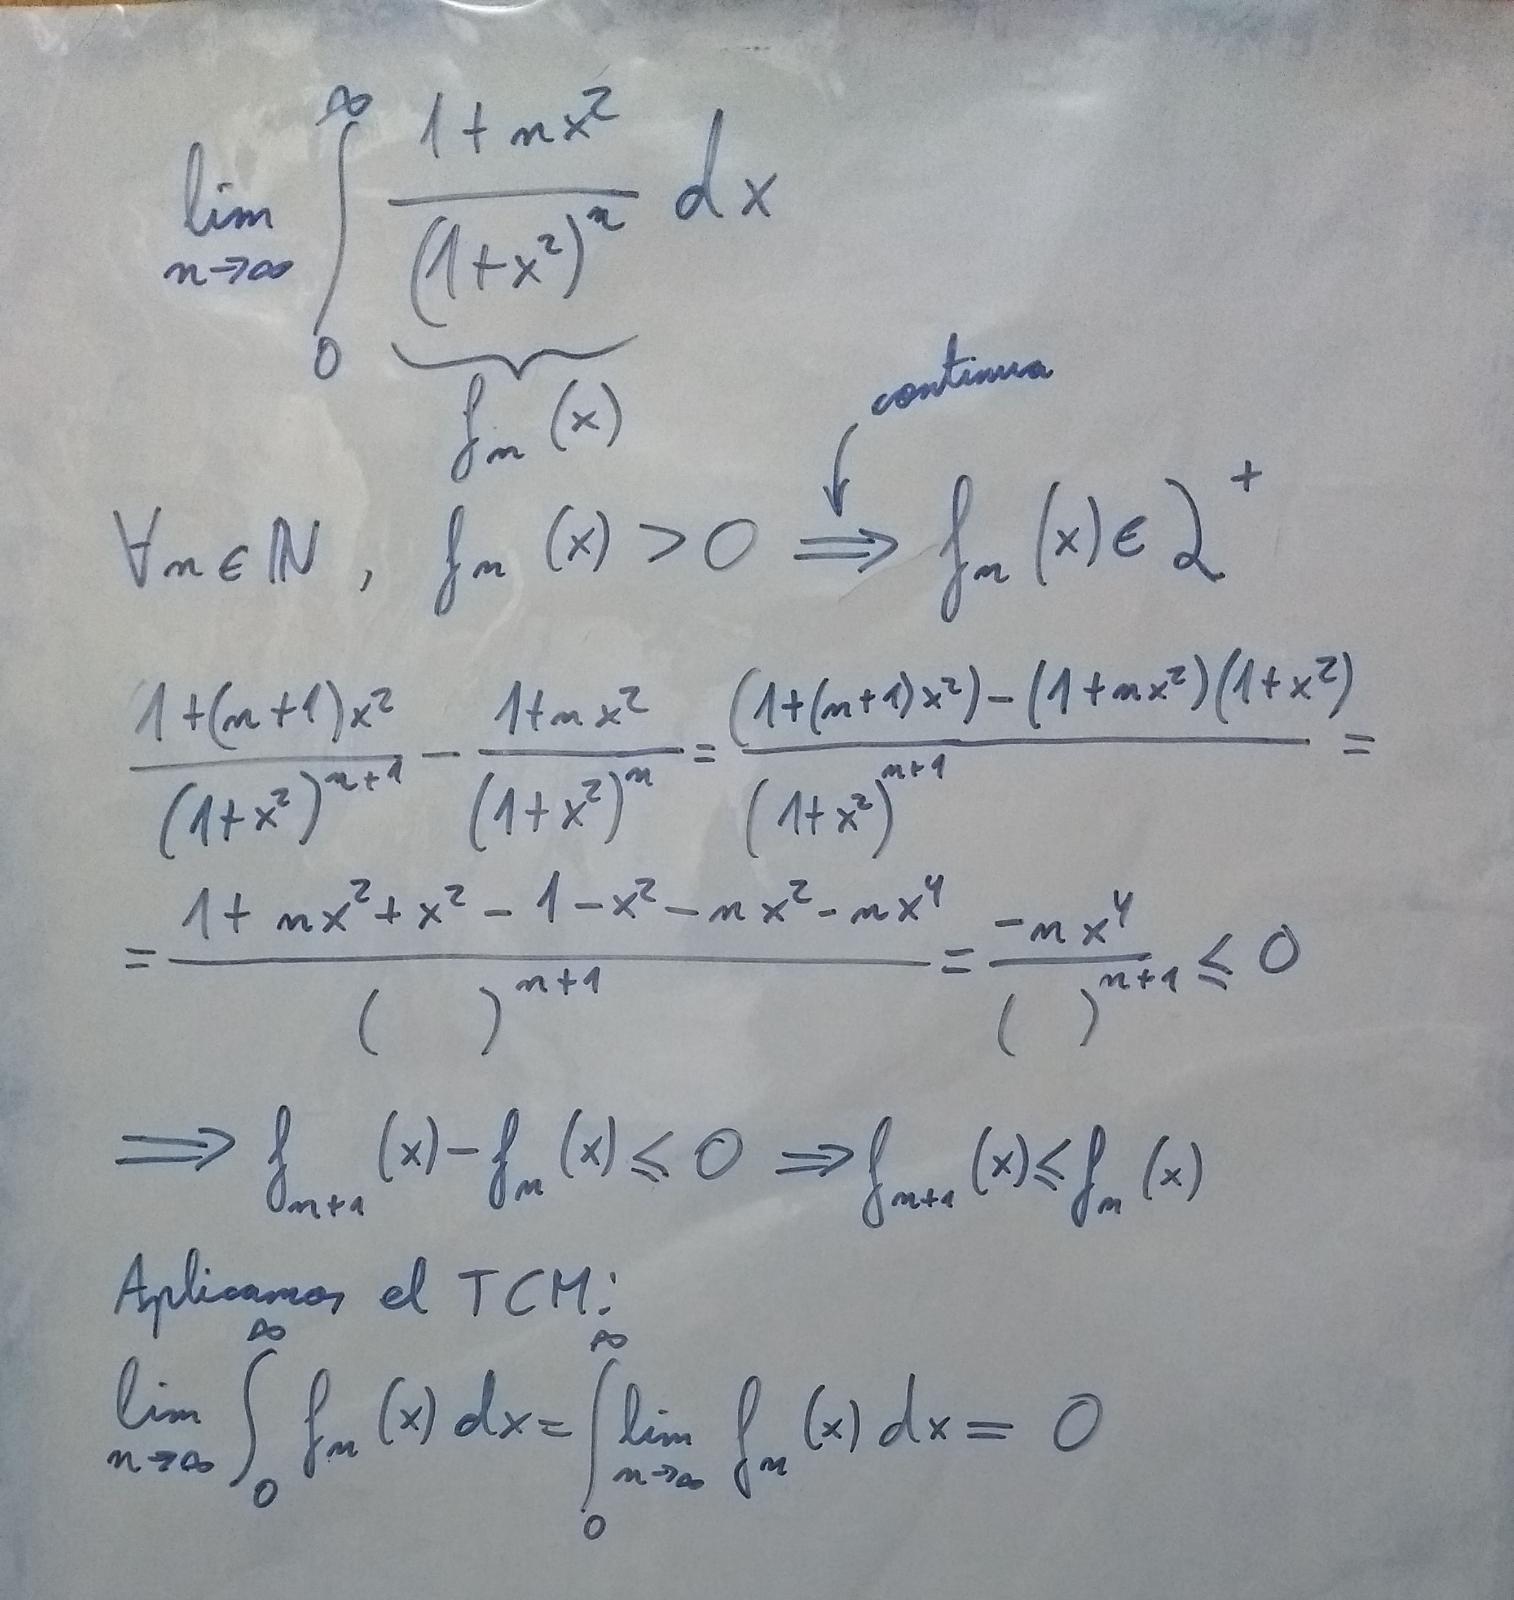 lim_{n→∞} ∫_0^∞ (1+nx²)/(1+x²)^n dx
f_n(x)
continua
∀n∈ℕ, f_n(x) > 0 ⟹ f_n(x) ∈ ℒ⁺
(1+(n+1)x²)/(1+x²)^{n+1} − (1+nx²)/(1+x²)^n = ((1+(n+1)x²)−(1+nx²)(1+x²))/(1+x²)^{n+1} =
= (1+nx²+x²−1−x²−nx²−nx⁴)/( )^{n+1} = (−nx⁴)/( )^{n+1} ≤ 0
⟹ f_{n+1}(x) − f_n(x) ≤ 0 ⟹ f_{n+1}(x) ≤ f_n(x)
Aplicamos el TCM:
lim_{n→∞} ∫_0^∞ f_n(x) dx = ∫_0^∞ lim_{n→∞} f_n(x) dx = 0